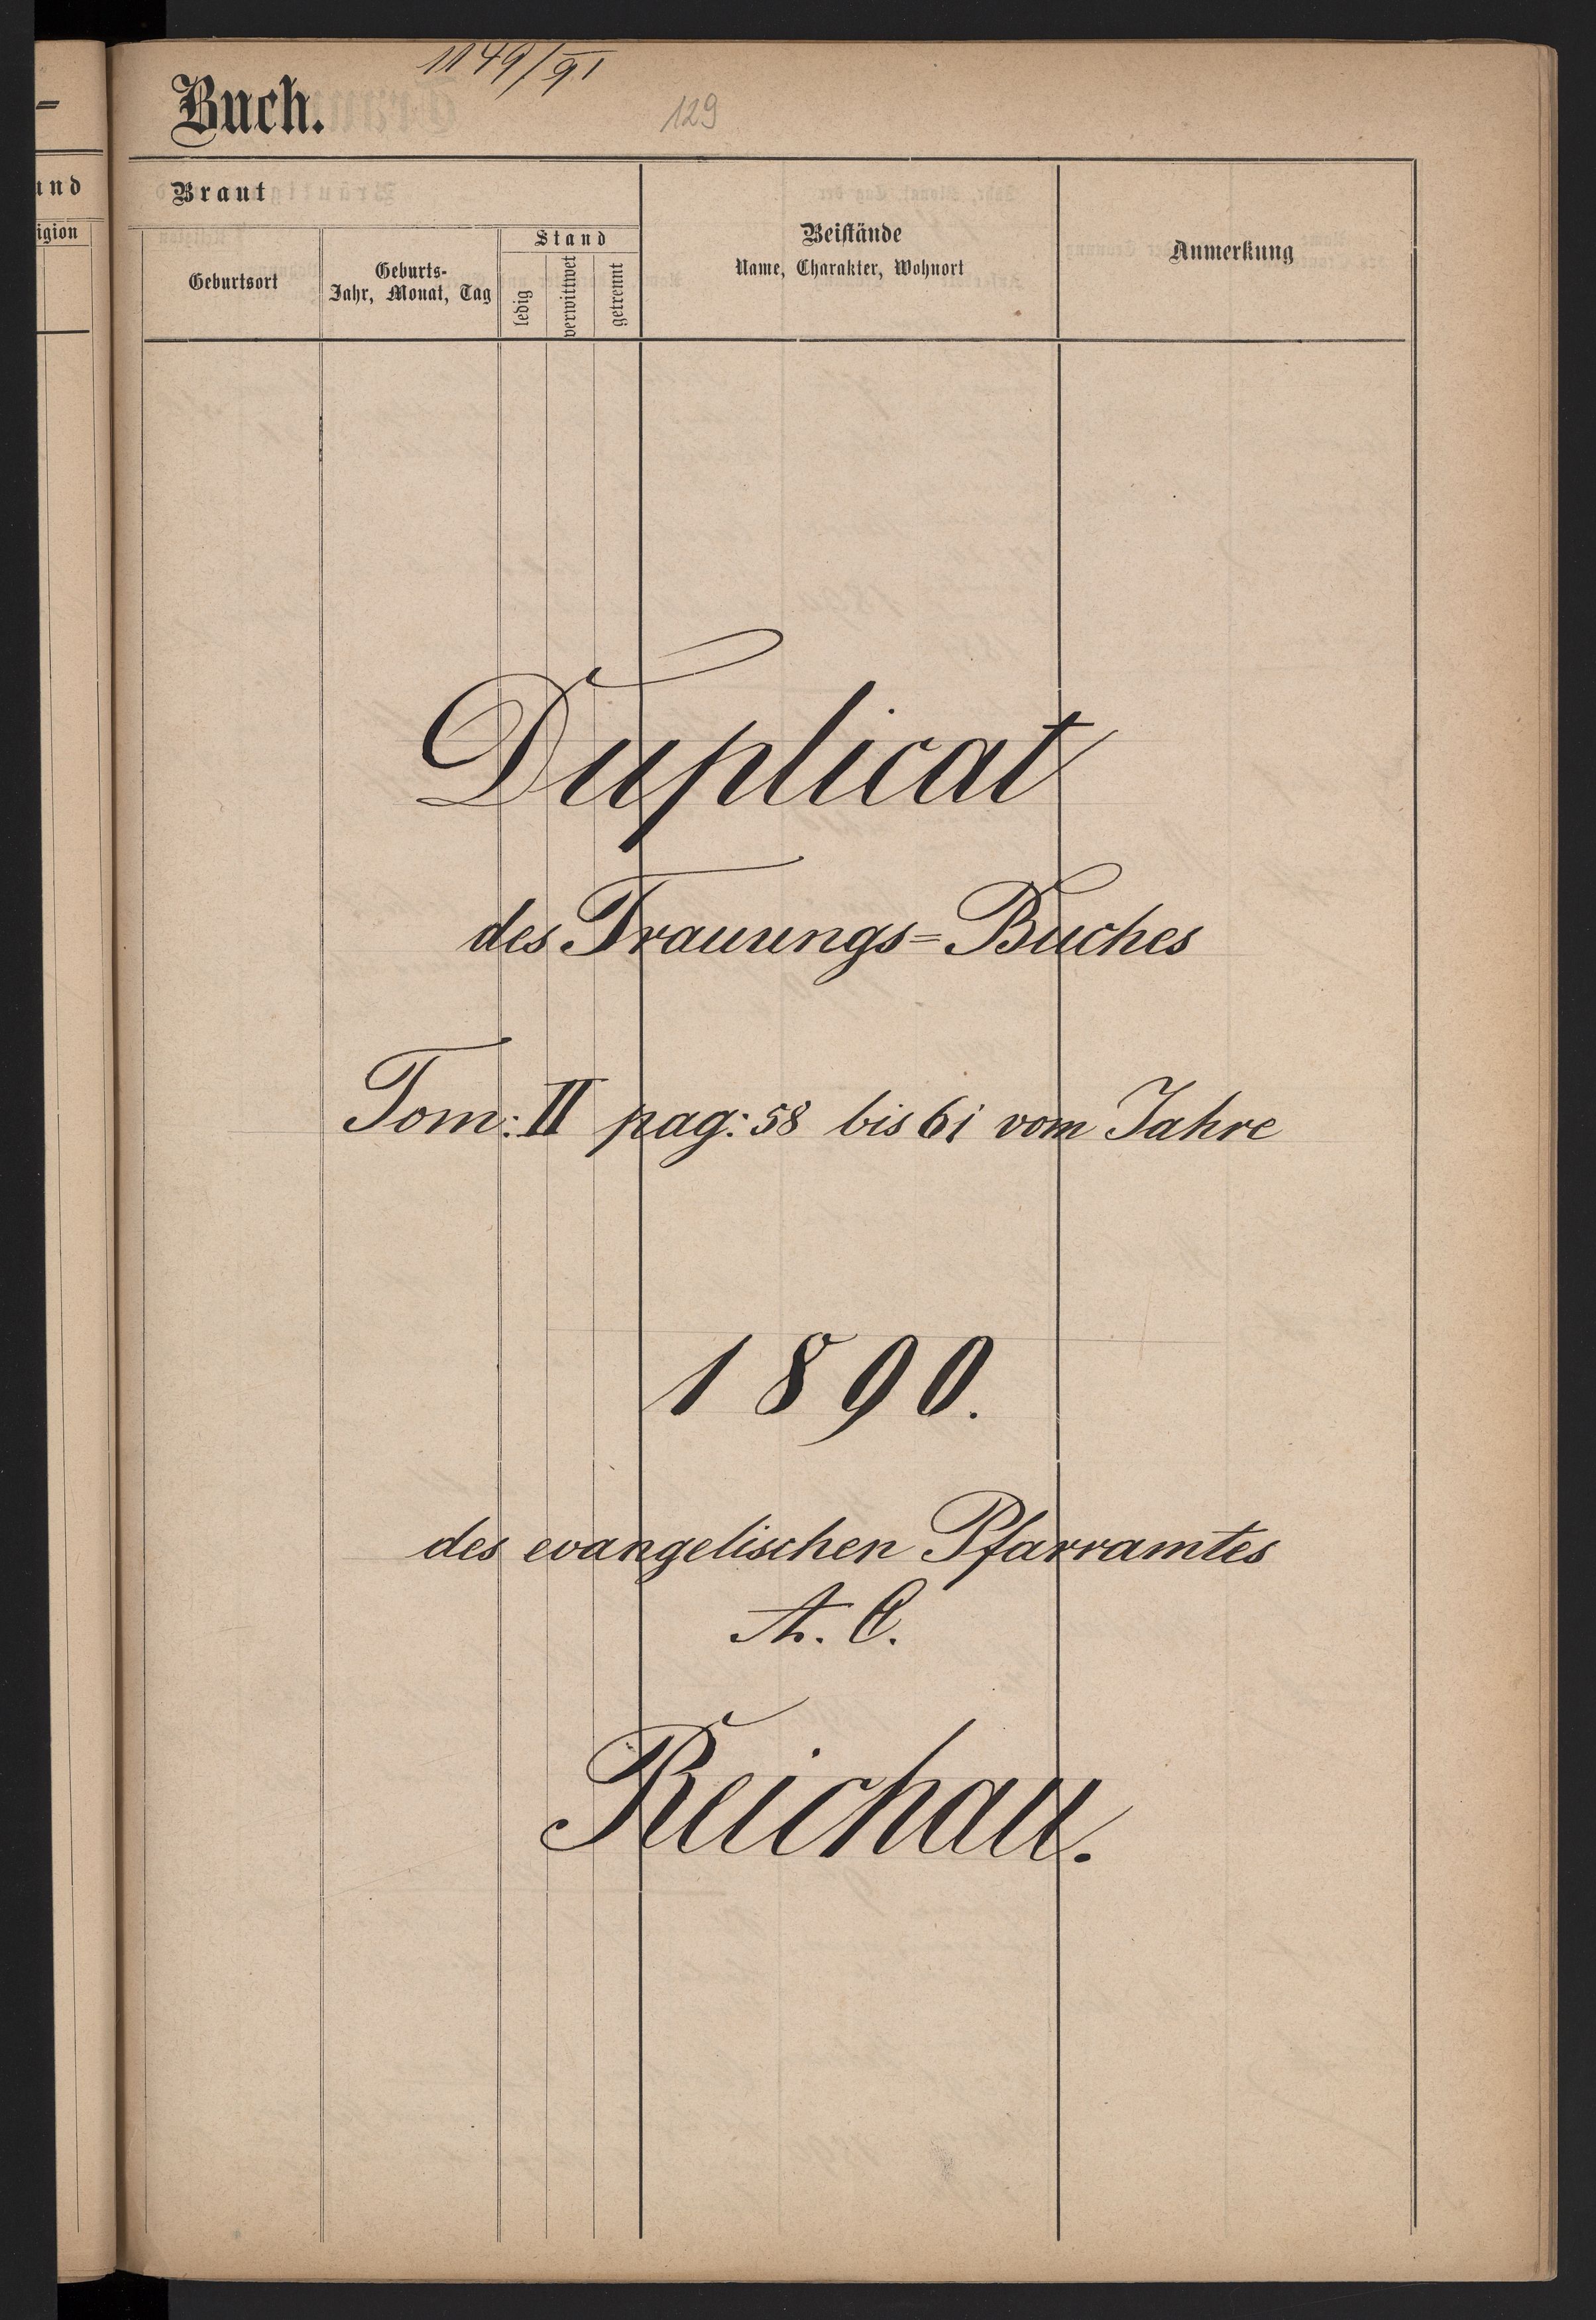 1149/91
Buch.
129
und
Braut
igion
Geburtsort
Geburts-
Jahr, Monat, Tag
Stand
ledig
verwittwet
getrennt
Beistände
Name, Charakter, Wohnort
Anmerkung
Duplicat
des Trauungs=Buches
Tom: II pag: 58 bis 61 vom Jahre
1890.
des evangelischen Pfarramtes
A. C.
Reichau.